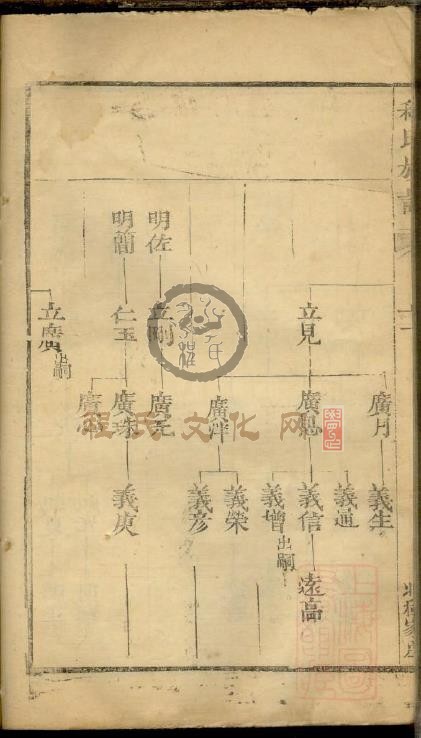 程氏族譜
明佐
明簡
立見
立剛
仁玉
立廣出嗣
廣月
廣聰
廣洋
廣元
廣珠
廣
義生
義通
義信
義增出嗣
義榮
義彥
義庚
遠高
程氏文化网